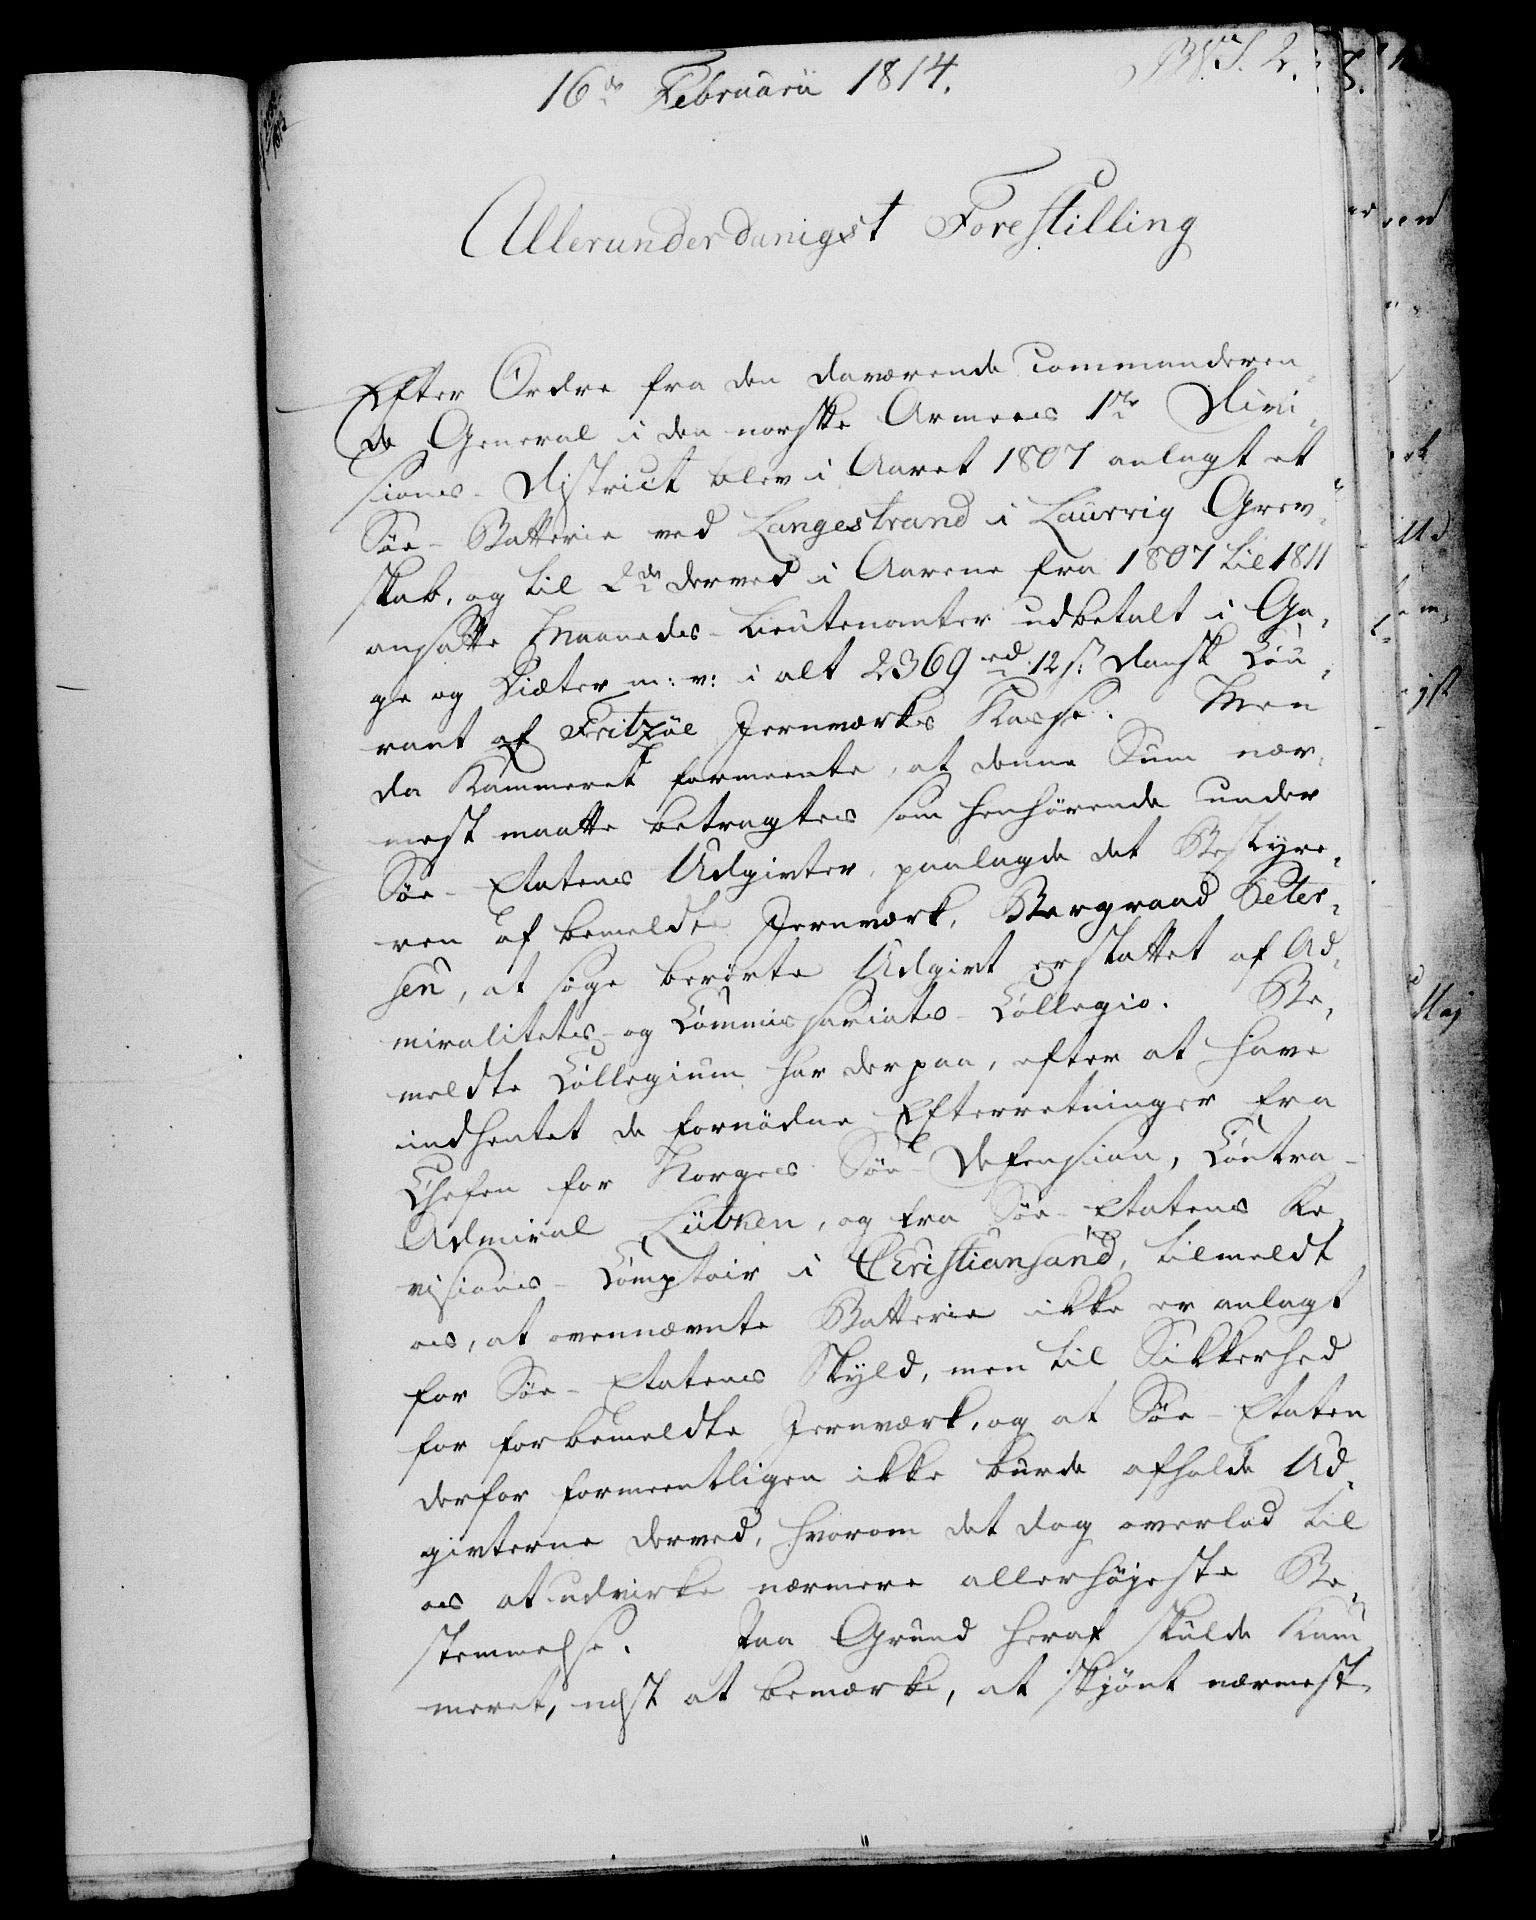 16de Februarii 1814.
Allerunderdanigst Forestilling
Efter Ordre fra den daværende commanderen„
de General i den norske Armees 1te Divi„
sions-District blev i Aaret 1807 anlagt et
Søe-Batterie ved Langestrand i Laurvig Grev„
skab, og til 2de derved i Aarene fra 1807 til 1811
ansatte Maaneds-Lieutenanter udbetalt i Ga„
ge og Diæter m: v: i alt 2369 rd 12 s. Dansk Cou„
rant af Fritzöe Jernværks Kasse. Men
da Kammeret formeente, at denne Sum nær„
mest maatte betragtes som henhørende under
Søe-Etatens Udgivter, paalagde det Bestyre„
ren af bemeldte Jernværk, Bergraad Peter„
sen, at søge berørte Udgivt erstattet af Ad„
miralitets- og Commissariats-Collegio. Be„
meldte Collegium har derpaa, efter at have
indhentet de fornødne Efterretninger fra
Chefen for Norges Søe-Defension, Contra-
Admiral Lütken, og fra Søe-Etatens Re„
visions-Comptoir i Christiansand, tilmeldt
os, at ovennævnte Batterie ikke er anlagt
for Søe-Etatens Skyld, men til Sikkerhed
for forbemeldte Jernværk, og at Søe-Etaten
derfor formeentligen ikke burde afholde Ud„
givterne derved, hvorom det dog overlod til
os at udvirke nærmere allerhøjeste Be„
stemmelse. Paa Grund heraf skulde Kam„
meret, næst at bemærke, at skjönt nærmest